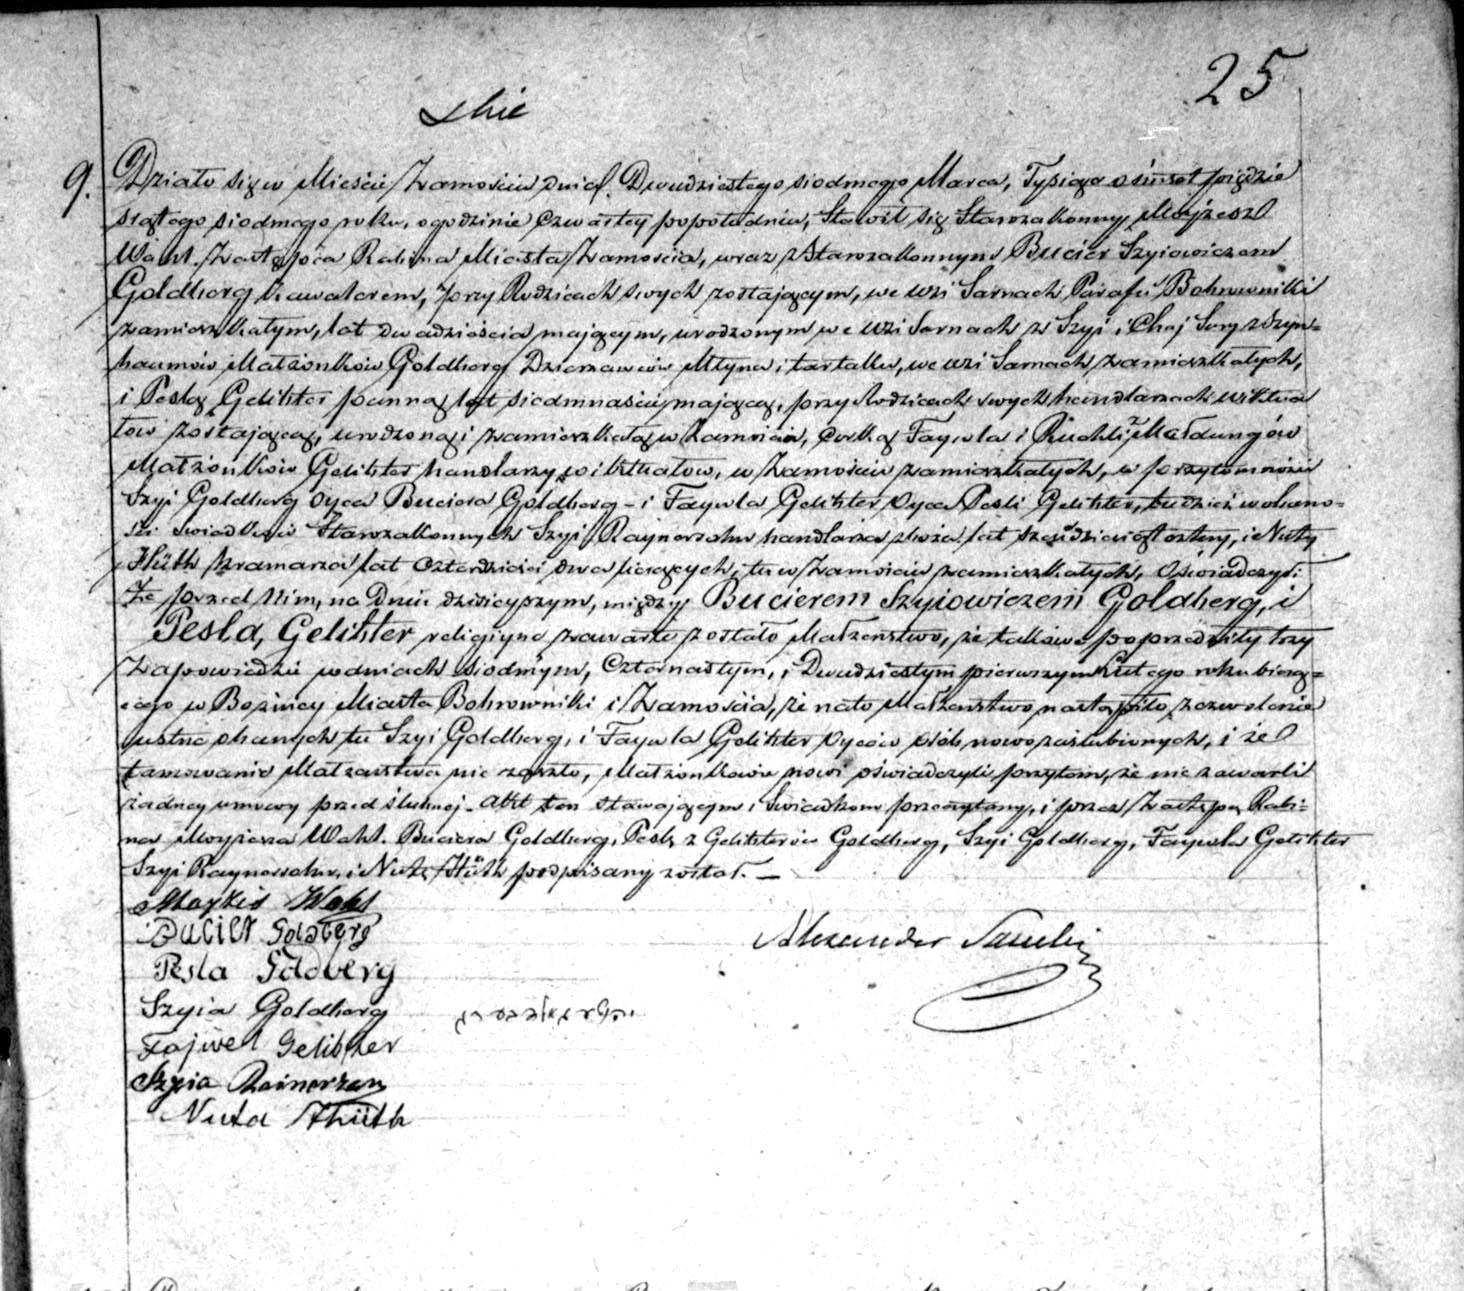 25
9. Działo się w Mieście Zamościu dnia Dwudziestego siodmego Marca, Tysiąc ośmset pięćdzie
siątego siodmego roku, o godzinie Czwartey popołudniu, Stawił się Starozakonny Moyżesz
Wahl. Zastępca Rabina Miasta Zamościa, wraz z Starozakonnym Bucier Szyiowiczem
Goldberg kawalerem, przy Rodzicach swych zostającym, we wsi Sarnach Parafii Bobrowniki
zamieszkałym, lat dwadzieścia mającym, urodzonym we wsi Sarnach z Szyi i Chaj Sury z Szyn=
baumów Małżonków Goldberg Dzierzawców Młyna i tartaku, we wsi Sarnach zamieszkałych,
i Peslą Gelibter panną lat siedmnaście mającą, przy Rodzicach swych handlarzach wiktua
łów zostającą, urodzoną i zamieszkałą w Zamościu, córką Faywla i Ruchli z Meldungów
Małżonków Gelibter handlarzy wiktuałów, w Zamościu zamieszkałych, w przytomności
Szyi Goldberg Oyca Buciera Goldberg - i Faywla Gelibter Oyca Pesli Gelibter, tudzież w obecno=
ści świadków Starozakonnych Szyi Raynerzahn handlarza zboża lat sześćdziesiąt cztery, i Nuty
Hüth kramarza lat czterdzieści dwa liczących, tu w Zamościu zamieszkałych, Oświadczyli
Że przed Nim, na Dniu dzisieyszym, między Bucierem Szyiowiczem Goldberg, i
Peslą, Gelibter religiyne zawarte zostało Małżeństwo, że takowe poprzedziły trzy
Zapowiedzie w dniach siodmym, Czternastym, i Dwudziestym pierwszym Lutego roku bieżą=
cego w Bożnicy Miasta Bobrowniki i Zamościa, że na to Małżeństwo nastąpiło zezwolenie
ustne obecnych tu Szyi Goldberg, i Faywla Gelibter Oyców osób nowozaślubionych, i że
tamowanie Małżeństwa nie zaszło, Małżonkowie nowi oświadczyli przytem, że nie zawarli
żadney umowy przedślubnej. Akt ten stawającym i Świadkom przeczytany, i przez Zastępcę Rabi=
na Moyżesza Wahl. Buciera Goldberg, Peslę z Gelibterów Goldberg, Szyi Goldberg, Faywla Gelibter
Szyi Raynerzahn, i Nutę Hüth podpisany został. —
Moyżes Wahl
Bucier Goldberg
Pesla Goldberg
Szyia Goldberg
Fajwel Gelibter
Szyia Rainerzan
Nuta Hüth
Alexander